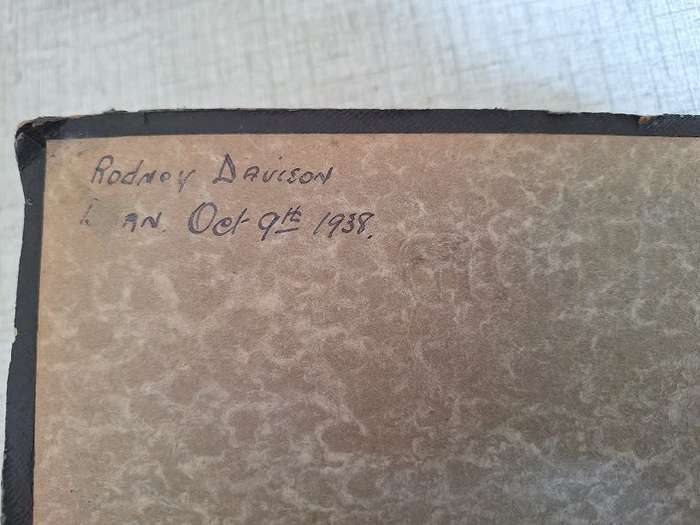 Rodney Davison
Oct 9th 1938.